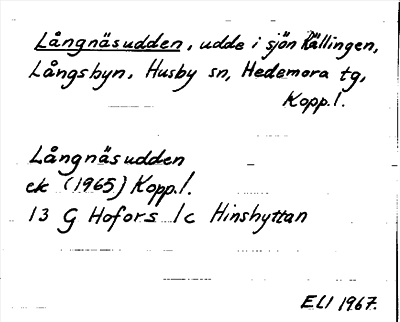 Långnäsudden, udde i sjön Rällingen,
Långsbyn, Husby sn, Hedemora tg,
Kopp.l.
Långnäsudden
ek (1965) Kopp.l.
13 G Hofors 1c Hinshyttan
ELI 1967.